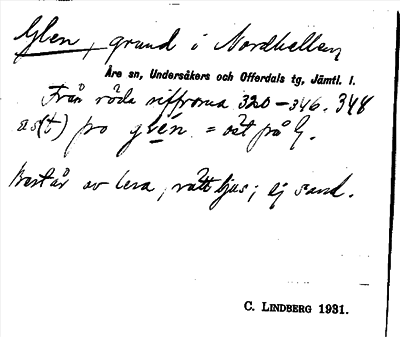 Glen, grund i Nordhellen
Åre sn, Undersåkers och Offerdals tg, Jämtl. l.
Från röda siffrorna 320–346. 348
as(t) po glén = öst på G.
Består av lera, rätt ljus; ej sand.
C. LINDBERG 1931.